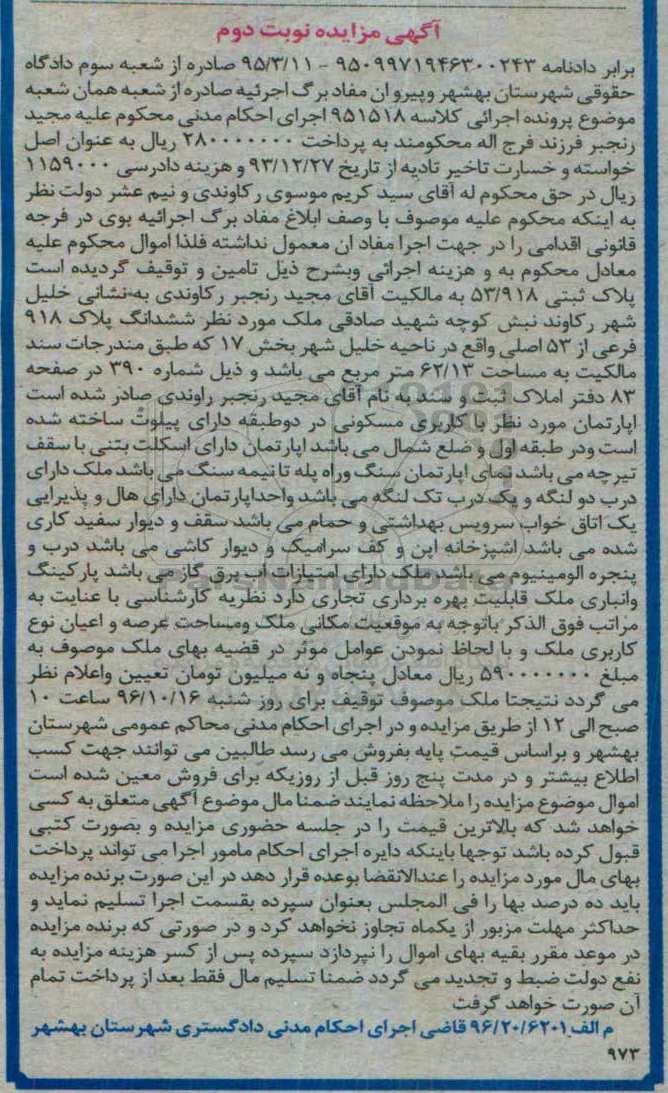 آگهی مزایده نوبت دوم
برابر دادنامه ۹۵۰۹۹۷۱۹۴۶۳۰۰۲۴۳ - ۹۵/۳/۱۱ صادره از شعبه سوم دادگاه
حقوقی شهرستان بهشهر و پیرو ان مفاد برگ اجرئیه صادره از شعبه همان شعبه
موضوع پرونده اجرائی کلاسه ۹۵۱۵۱۸ اجرای احکام مدنی محکوم علیه مجید
رنجبر فرزند فرج اله محکومند به پرداخت ۲۸۰۰۰۰۰۰۰ ریال به عنوان اصل
خواسته و خسارت تاخیر تادیه از تاریخ ۹۳/۱۲/۲۷ و هزینه دادرسی ۱۱۵۹۰۰۰
ریال در حق محکوم له آقای سید کریم موسوی رکاوندی و نیم عشر دولت نظر
به اینکه محکوم علیه موصوف با وصف ابلاغ مفاد برگ اجرائیه بوی در فرجه
قانونی اقدامی را در جهت اجرا مفاد ان معمول نداشته فلذا اموال محکوم علیه
معادل محکوم به و هزینه اجرائی وبشرح ذیل تامین و توقیف گردیده است
پلاک ثبتی ۵۳/۹۱۸ به مالکیت آقای مجید رنجبر رکاوندی به نشانی خلیل
شهر رکاوند نبش کوچه شهید صادقی ملک مورد نظر ششدانگ پلاک ۹۱۸
فرعی از ۵۳ اصلی واقع در ناحیه خلیل شهر بخش ۱۷ که طبق مندرجات سند
مالکیت به مساحت ۶۲/۱۳ متر مربع می باشد و ذیل شماره ۳۹۰ در صفحه
۸۳ دفتر املاک ثبت و سند به نام آقای مجید رنجبر راوندی صادر شده است
اپارتمان مورد نظر با کاربری مسکونی در دوطبقه دارای پیلوت ساخته شده
است ودر طبقه اول و ضلع شمال می باشد اپارتمان دارای اسکلت بتنی با سقف
تیرچه می باشد نمای اپارتمان سنگ وراه پله تا نیمه سنگ می باشد ملک دارای
درب دو لنگه و یک درب تک لنگه می باشد واحداپارتمان دارای هال و پذیرایی
یک اتاق خواب سرویس بهداشتی و حمام می باشد سقف و دیوار سفید کاری
شده می باشد اشپزخانه اپن و کف سرامیک و دیوار کاشی می باشد درب و
پنجره الومینیوم می باشد ملک دارای امتیازات اب برق گاز می باشد پارکینگ
وانباری ملک قابلیت بهره برداری تجاری دارد نظریه کارشناسی با عنایت به
مراتب فوق الذکر باتوجه به موقعیت مکانی ملک ومساحت عرصه و اعیان نوع
کاربری ملک و با لحاظ نمودن عوامل موثر در قضیه بهای ملک موصوف به
مبلغ ۵۹۰۰۰۰۰۰۰ ریال معادل پنجاه و نه میلیون تومان تعیین واعلام نظر
می گردد نتیجتا ملک موصوف توقیف برای روز شنبه ۹۶/۱۰/۱۶ ساعت ۱۰
صبح الی ۱۲ از طریق مزایده و در اجرای احکام مدنی محاکم عمومی شهرستان
بهشهر و براساس قیمت پایه بفروش می رسد طالبین می توانند جهت کسب
اطلاع بیشتر و در مدت پنج روز قبل از روزیکه برای فروش معین شده است
اموال موضوع مزایده را ملاحظه نمایند ضمنا مال موضوع آگهی متعلق به کسی
خواهد شد که بالاترین قیمت را در جلسه حضوری مزایده و بصورت کتبی
قبول کرده باشد توجها باینکه دایره اجرای احکام مامور اجرا می تواند پرداخت
بهای مال مورد مزایده را عندالانقضا بوعده قرار دهد در این صورت برنده مزایده
باید ده درصد بها را فی المجلس بعنوان سپرده بقسمت اجرا تسلیم نماید و
حداکثر مهلت مزبور از یکماه تجاوز نخواهد کرد و در صورتی که برنده مزایده
در موعد مقرر بقیه بهای اموال را نپردازد سپرده پس از کسر هزینه مزایده به
نفع دولت ضبط و تجدید می گردد ضمنا تسلیم مال فقط بعد از پرداخت تمام
آن صورت خواهد گرفت
م الف ۹۶/۲۰/۶۲۰۱ قاضی اجرای احکام مدنی دادگستری شهرستان بهشهر
۹۷۳